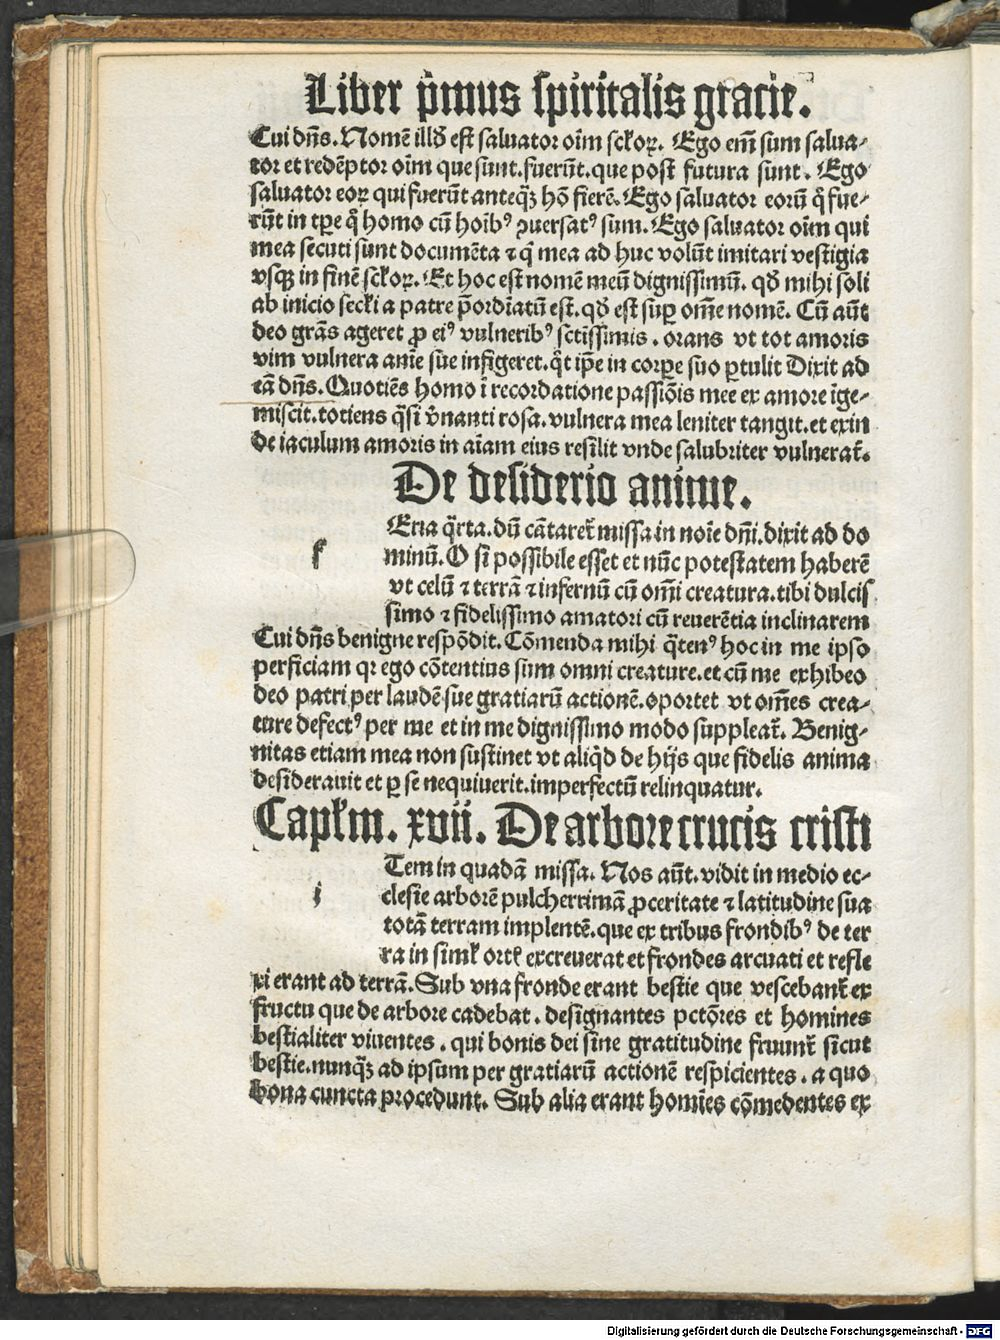 Liber p̄mus spiritalis gracie.
Cui dn̄s. Nomē illḋ est saluator oīm scꝉoꝝ. Ego em̄ sum salua⸗
tor et redēptor oīm que sunt. fuerūt. que post futura sunt. Ego
saluator eoꝝ qui fuerūt anteqꝫ hō fierē. Ego saluator eorū q̇ fue⸗
rūt in tꝑe q̇ homo cū hoībꝰ ꝯuersatꝰ sum. Ego saluator oīm qui
mea secuti sunt documēta ⁊ q̇ mea ad huc volūt imitari vestigia
vsqꝫ in finē scꝉoꝝ. Et hoc est nomē meū dignissimū. qḋ mihi soli
ab inicio secꝉi a patre p̄ordīatū est. qḋ est suꝑ om̄e nomē. Cū aūt
deo grās ageret ꝓ eiꝰ vulneribꝰ sctīssimis. orans vt tot amoris
vim vulnera anīe sūe infigeret. q̇t ip̄e in corꝑe suo ꝑtulit Dixit ad
eā dn̄s. Quotiēs homo ī recordatione passiōis mee ex amore īge⸗
miscit. totiens q̄si v̇nanti rosa. vulnera mea leniter tangit. et exin
de iaculum amoris in aīam eius resilit vnde salubriter vulnerat̄.
De desiderio anime.
f Eria q̄rta. dū cātaret̄ missa in noīe dn̄i. dixit ad do
minū. O si possibile esset et nūc potestatem haberē
vt celū ⁊ terrā ⁊ infernū cū om̄i creatura. tibi dulcis
simo ⁊ fidelissimo amatori cū reuerētia inclinarem
Cui dn̄s benigne respōdit. Cōmenda mihi q̄tenꝰ hoc in me ipso
perficiam qꝛ ego cōtentius sum omni creature. et cū me exhibeo
deo patri per laudē sue gratiarū actionē. oportet vt om̄es crea⸗
ture defectꝰ per me et in me dignissimo modo suppleat̄. Benig⸗
nitas etiam mea non sustinet vt aliq̇d de hijs que fidelis anima
desiderauit et ꝑ se nequiuerit. imperfectū relinquatur.
Capꝉm. xvii. De arbore crucis cristi
i Tem in quadā missa. Nos aūt. vidit in medio ec⸗
clesie arborē pulcherrimā ꝓceritate ⁊ latitudine sua
totā terram implentē. que ex tribus frondibꝰ de ter
ra in simꝉ ortꝭ excreuerat et frondes arcuati et refle
xi erant ad terrā. Sub vna fronde erant bestie que vescebant̄ ex
fructu que de arbore cadebat. designantes pctōres et homines
bestialiter viuentes. qui bonis dei sine gratitudine fruunt̄ sicut
bestie. nunqꝫ ad ipsum per gratiarū actionē respicientes. a quo
bona cuncta procedunt. Sub alia erant homīes cōmedentes ex
Digitalisierung gefördert durch die Deutsche Forschungsgemeinschaft - DFG